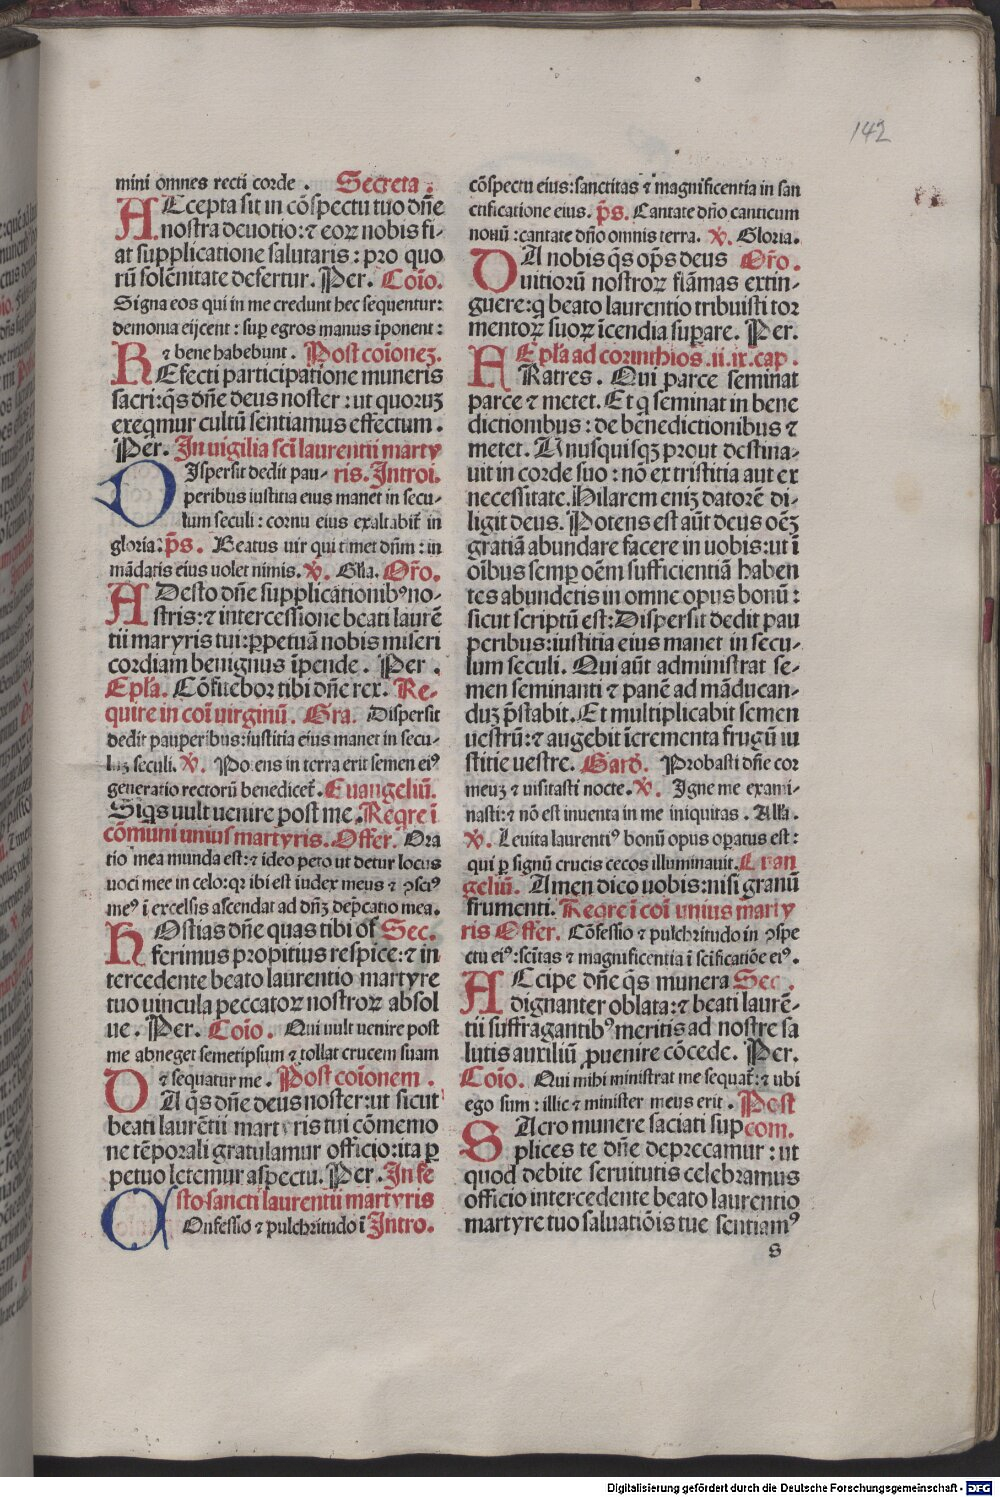 142
mini omnes recti corde . Secreta .
AEcepta sit in cõspectu tuo dñe
nostra deuotio: ⁊ eoꝝ nobis fi-
at supplicatione salutaris : pro quo
rũ solẽnitate defertur. Per. Coĩo.
Signa eos qui in me credunt hec sequentur:
demonia eijcent : suꝑ egros manus ĩponent :
⁊ bene habebunt . Post coĩoneʒ.
REfecti participatione muneris
sacri: q̃s dñe deus noster : ut quoruʒ
exeqmur cultũ sentiamus effectum .
Per. In uigilia sci laurentii marty
DIspersit dedit pau- ris. Introi.
peribus iustitia eius manet in secu-
lum seculi : cornu eius exaltabit̃ in
gloria: p̃s. Beatus uir qui timet dñm : in
mãdatis eius uolet nimis. ℣. Glia. Or̃o.
ADesto dñe supplicationibꝰ no-
stris: ⁊ intercessione beati laurẽ
tii maryris tui: ꝑpetuã nobis miseri
cordiam benignus ĩpende. Per .
Epl̃a. Cõfitebor tibi dñe rex. Re-
quire in coĩ uirginũ. Gra. Dispersit
dedit pauperibus: iustitia eius manet in secu-
luʒ seculi. ℣. Potens in terra erit semen eiꝰ
generatio rectorũ benedicet̃. Euangeliũ.
Siq̃s uult uenire post me. Reqre ĩ
cõmuni unius martyris. Offer. Ora
tio mea munda est: ⁊ ideo peto ut detur locus
uoci mee in celo: qꝛ ibi est iudex meus ⁊ ꝯsciꝰ
meꝰ ĩ excelsis ascendat ad dñʒ dep̃catio mea.
HOstias dñe quas tibi of Sec.
ferimus propitius respice: ⁊ in
tercedente beato laurentio martyre
tuo uincula peccatoꝝ nostroꝝ absol
ue . Per. Coĩo. Qui uult uenire post
me abneget semetipsum ⁊ tollat crucem suam
⁊ sequatur me . Post coĩonem .
DA q̃s dñe deus noster: ut sicut
beati laurẽtii martyris tui cõmemo
ne tẽporali gratulamur officio: ita ꝑ
petuo letemur aspectu. Per. In fe
sto sancti laurentii martyris
COnfessio ⁊ pulchritudo ĩ Intro.
cõspectu eius: sanctitas ⁊ magnificentia in san
ctificatione eius. p̃s. Cantate dño canticum
nouũ : cantate dño omnis terra. ℣. Gloria.
DA nobis q̃s op̃s deus Or̃o.
uitiorũ nostroꝝ flãmas extin-
guere: q beato laurentio tribuisti tor
mentoꝝ suoꝝ ĩcendia suꝑare. Per.
Epl̃a ad corinthios .ii. ix. cap .
FRatres . Qui parce seminat
parce ⁊ metet. Et q seminat in bene
dictionibus : de benedictionibus ⁊
metet. Unusquisqʒ prout destina-
uit in corde suo : nõ ex tristitia aut ex
necessitate. Hilarem eniʒ datorẽ di-
ligit deus. Potens est aũt deus oẽʒ
gratiã abundare facere in uobis: ut ĩ
oĩbus semꝑ oẽm sufficientiã haben
tes abundetis in omne opus bonũ :
sicut scriptũ est: Dispersit dedit pau
peribus: iustitia eius manet in secu-
lum seculi. Qui aũt administrat se-
men seminanti ⁊ panẽ ad mãducan-
duʒ p̃stabit. Et multiplicabit semen
uestrũ: ⁊ augebit ĩcrementa frugũ iu
stitie uestre. Grad̃. Probasti dñe cor
meuʒ ⁊ uisitasti nocte. ℣. Igne me exami-
nasti: ⁊ nõ est inuenta in me iniquitas . All̃a.
℣. Leuita laurentiꝰ bonũ opus opatus est :
qui ꝑ signũ crucis cecos illuminauit. Euan
geliũ. Amen dico uobis: nisi granũ
frumenti. Reqre ĩ coĩ unius marty
ris Offer. Cõfessio ⁊ pulchritudo in ꝯspe
ctu eiꝰ: scĩtas ⁊ magnificentia ĩ scificatiõe eiꝰ.
ACcipe dñe q̃s munera Sec .
dignanter oblata: ⁊ beati laurẽ-
tii suffragantibꝰ meritis ad nostre sa
lutis auxiliũ ꝓuenire cõcede. Per.
Coĩo. Qui mihi ministrat me sequat̃: ⁊ ubi
ego sum : illic ⁊ minister meus erit . Post
SAcro munere saciati sup com.
plices te dñe deprecamur : ut
quod debite seruitutis celebramus
officio intercedente beato laurentio
martyre tuo saluatiõis tue sentiamꝰ
s
Digitalisierung gefördert durch die Deutsche Forschungsgemeinschaft - DFG